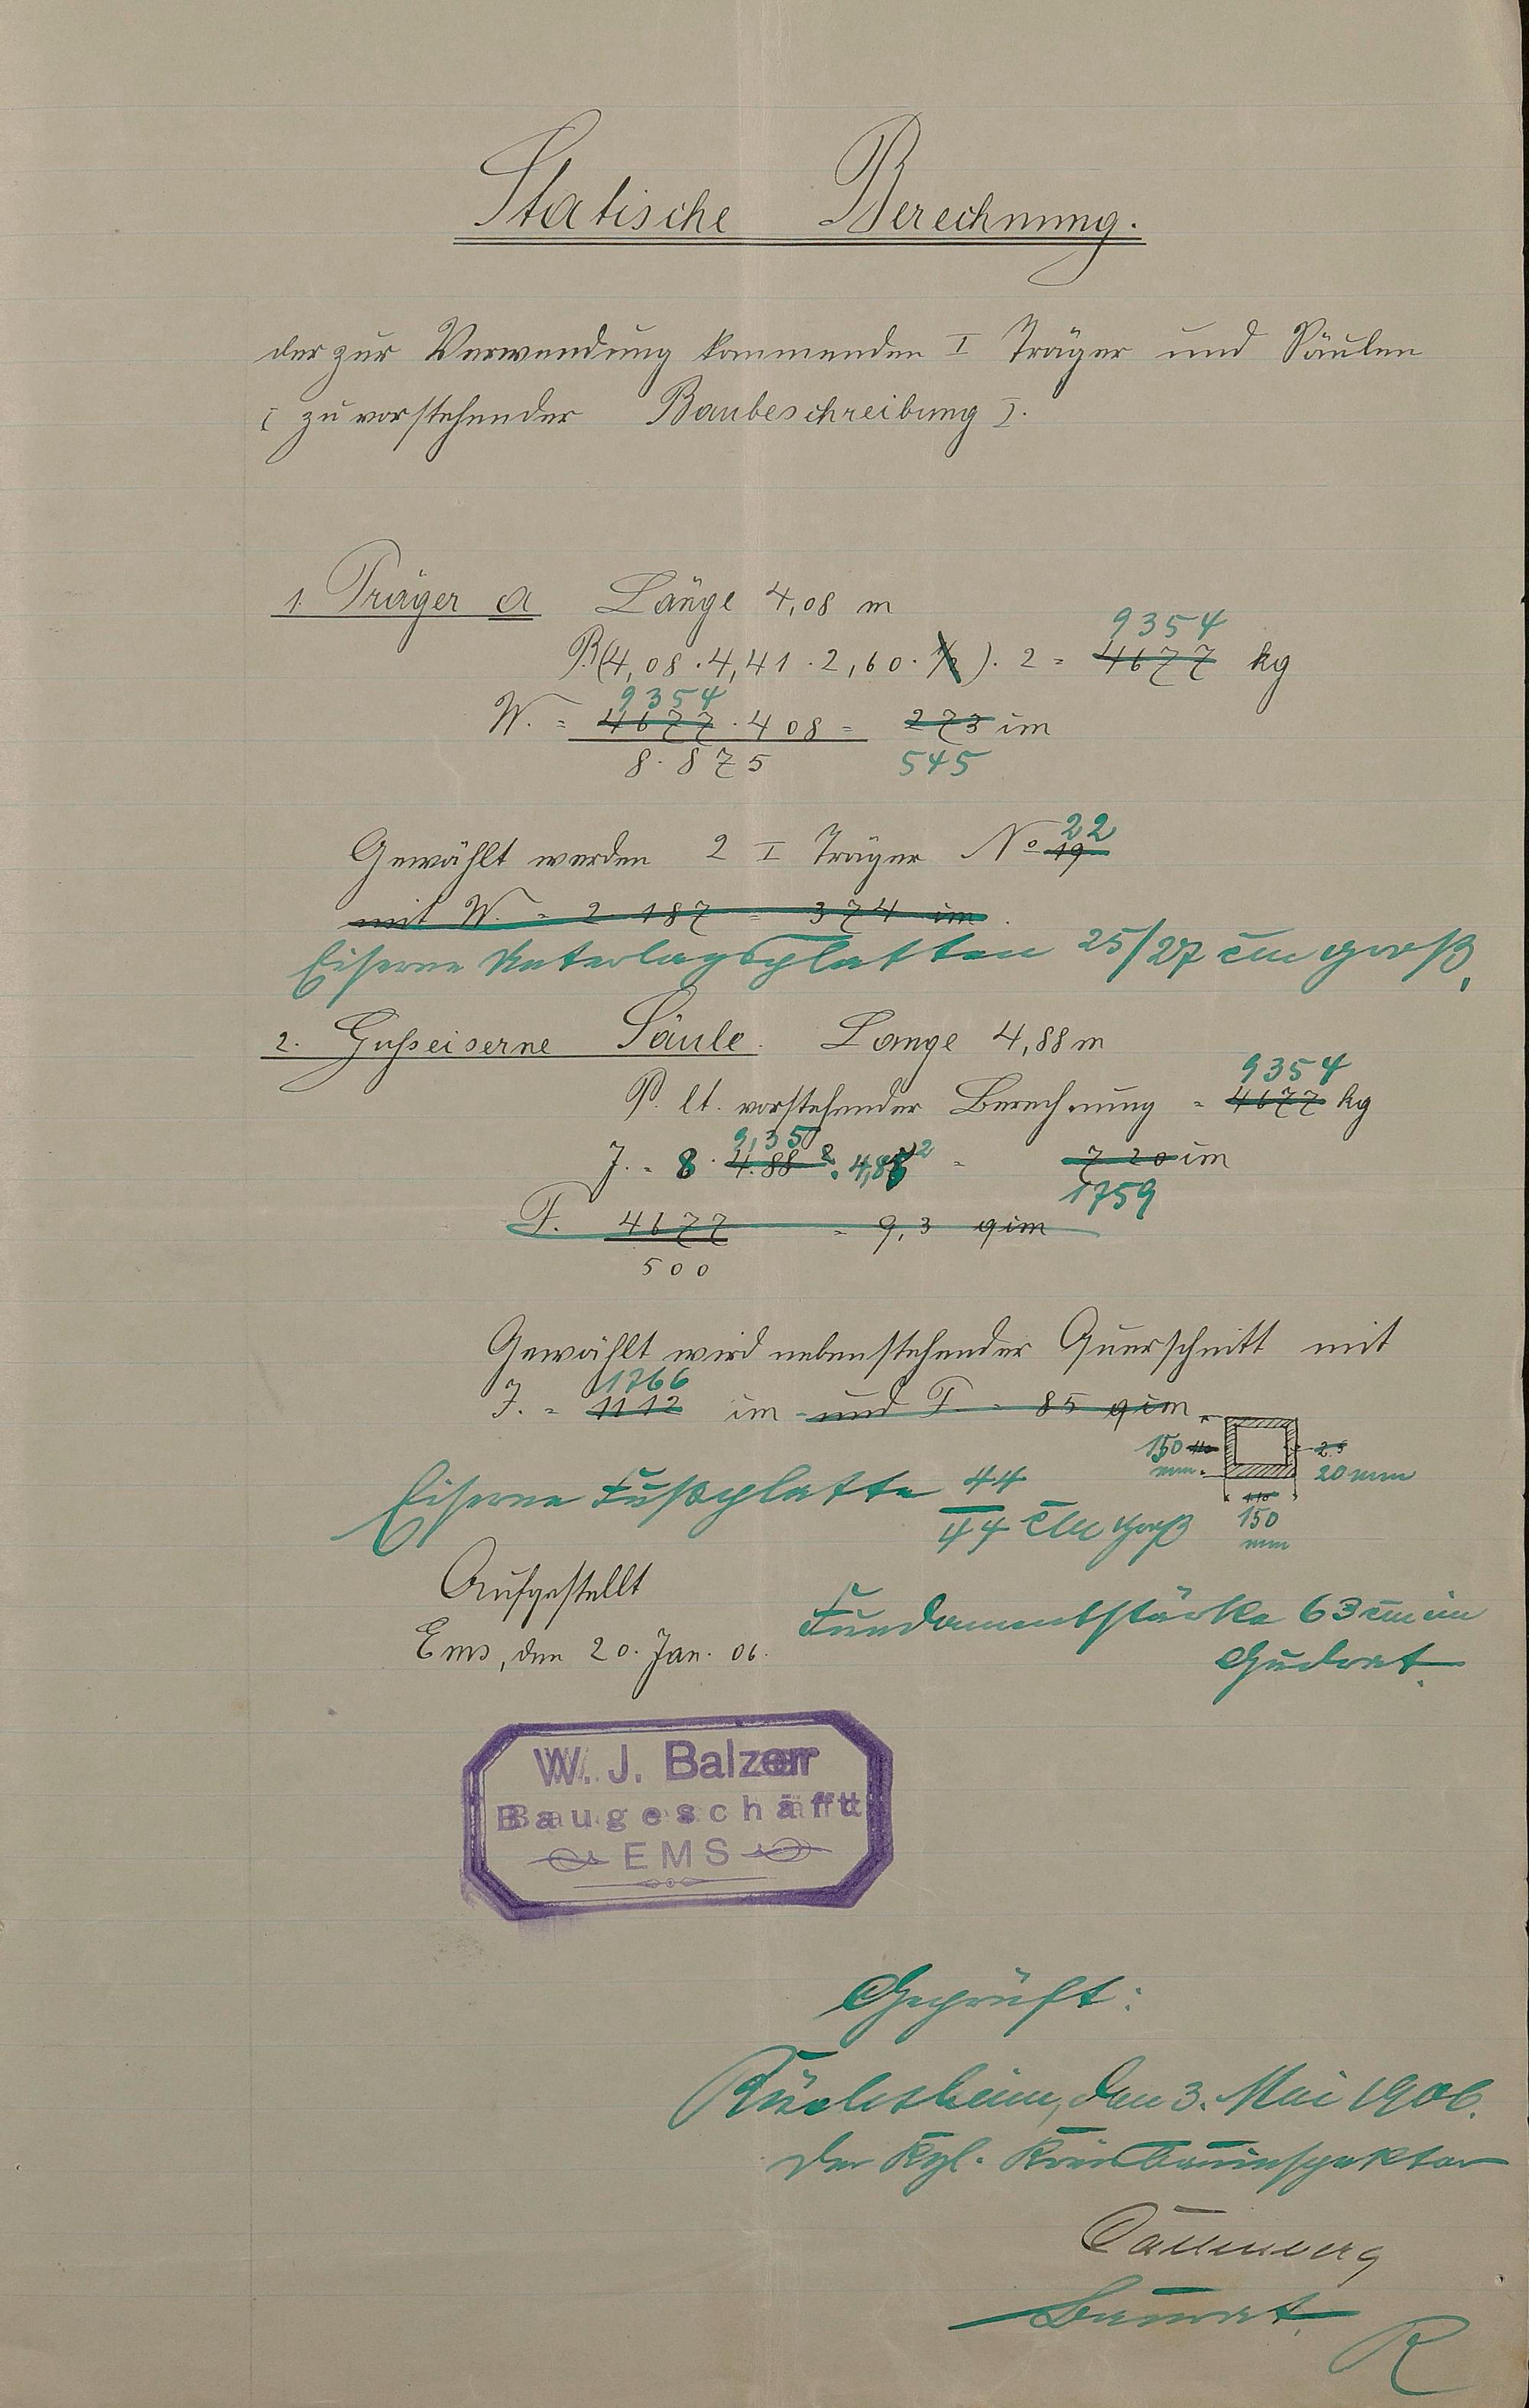 Statische Berechnung.
der zur Verwendung kommenden I Träger und Säulen
( zu vorstehender Baubeschreibung ).
1. Träger a Länge 4,08 m
9354
P(4,08 . 4,41 . 2,60 . ½ ) . 2 = 4677 kg
9354
W. = 4677 . 408 = 273 im
8 . 875 545
22
Gewählt werden 2 I Träger No 19
mit W. = 2 . 187 = 374 im.
Eiserne Unterlagsplatten 25/27 cm groß.
2. Gußeiserne Säule. Lange 4,88 m
9354
P. lt. vorstehender Berechnung = 4677 kg
9,35
J. = 8 . 4.88 . 4,85² = 720 im
1759
F. 4677 = 9,3 qim
500
Gewählt wird nebenstehender Querschnitt mit
1766
J. = 1112 im und F. = 85 qim.
150 2.5
mm. 20 mm
Eiserne Fußplatte 44
44 cm groß 150
mm
Aufgestellt
Fundamentstärke 63 cm im
Ems, den 20. Jan. 06.
Qudrat.
W. J. Balzer
Baugeschäft
EMS
Geprüft:
Rüdesheim, den 3. Mai 1906.
Der Kgl. Kreisbauinspektor
Baurat.
R